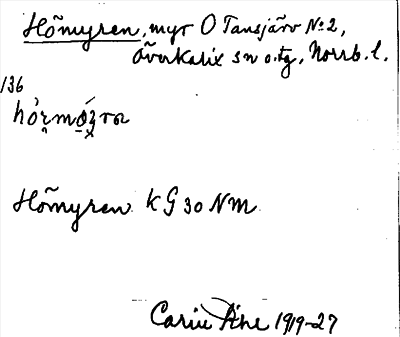 Hömyren, myr O Tansjärv No 2,
Överkalix sn o. tg, Norrb. l.
136
Hömyren KG 30 NM
Carin Pihl 1919-27